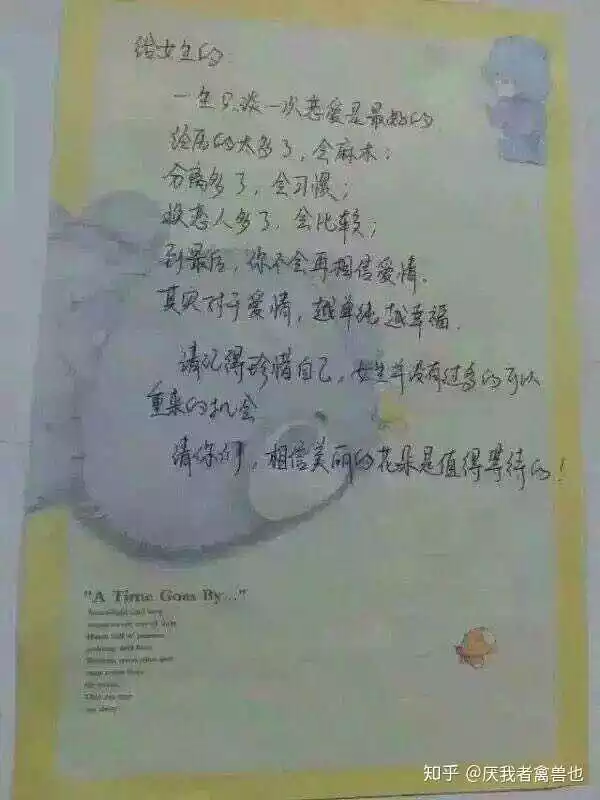 给女生的
一生只谈一次恋爱是最好的
经历的太多了，会麻木；
分离多了，会习惯；
换恋人多了，会比较；
到最后，你不会再相信爱情．
其实对于爱情，越单纯越幸福．
请记得珍惜自己，女生并没有过多的可以
重来的机会
请你们，相信美丽的花朵是值得等待的！
"A Time Goes By..."
知乎 @厌我者禽兽也